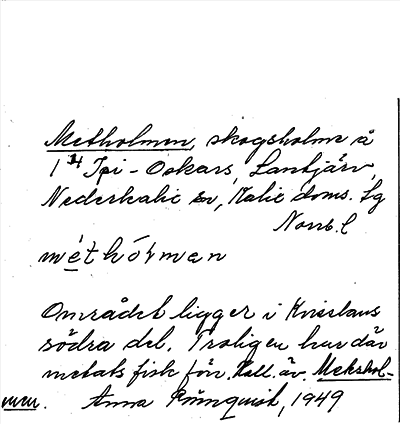 Metholmen, skogsholme å
1 24 Ipi-Oskars, Lantjärv,
Nederkalix sn, Kalix doms. lg
Norrb. l
méthó𝑙men
Området ligger i Kvisslans
södra del. Troligen har där
metats fisk förr. Kall. äv. Mekshol-
men. Anna Rönnquist, 1949